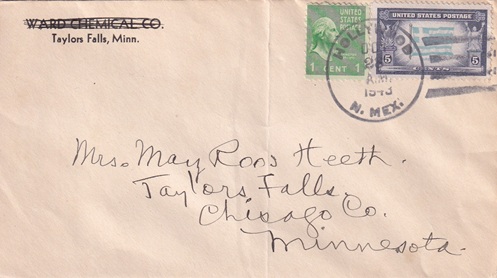 WARD CHEMICAL CO.
Taylors Falls, Minn.
UNITED
STATES
POSTAGE
1 CENT 1
UNITED STATES POSTAGE
5 5
1943
N. MEX.
Mrs. May Roos Heeth.
Taylors Falls.
Chisago Co.
Minnesota.